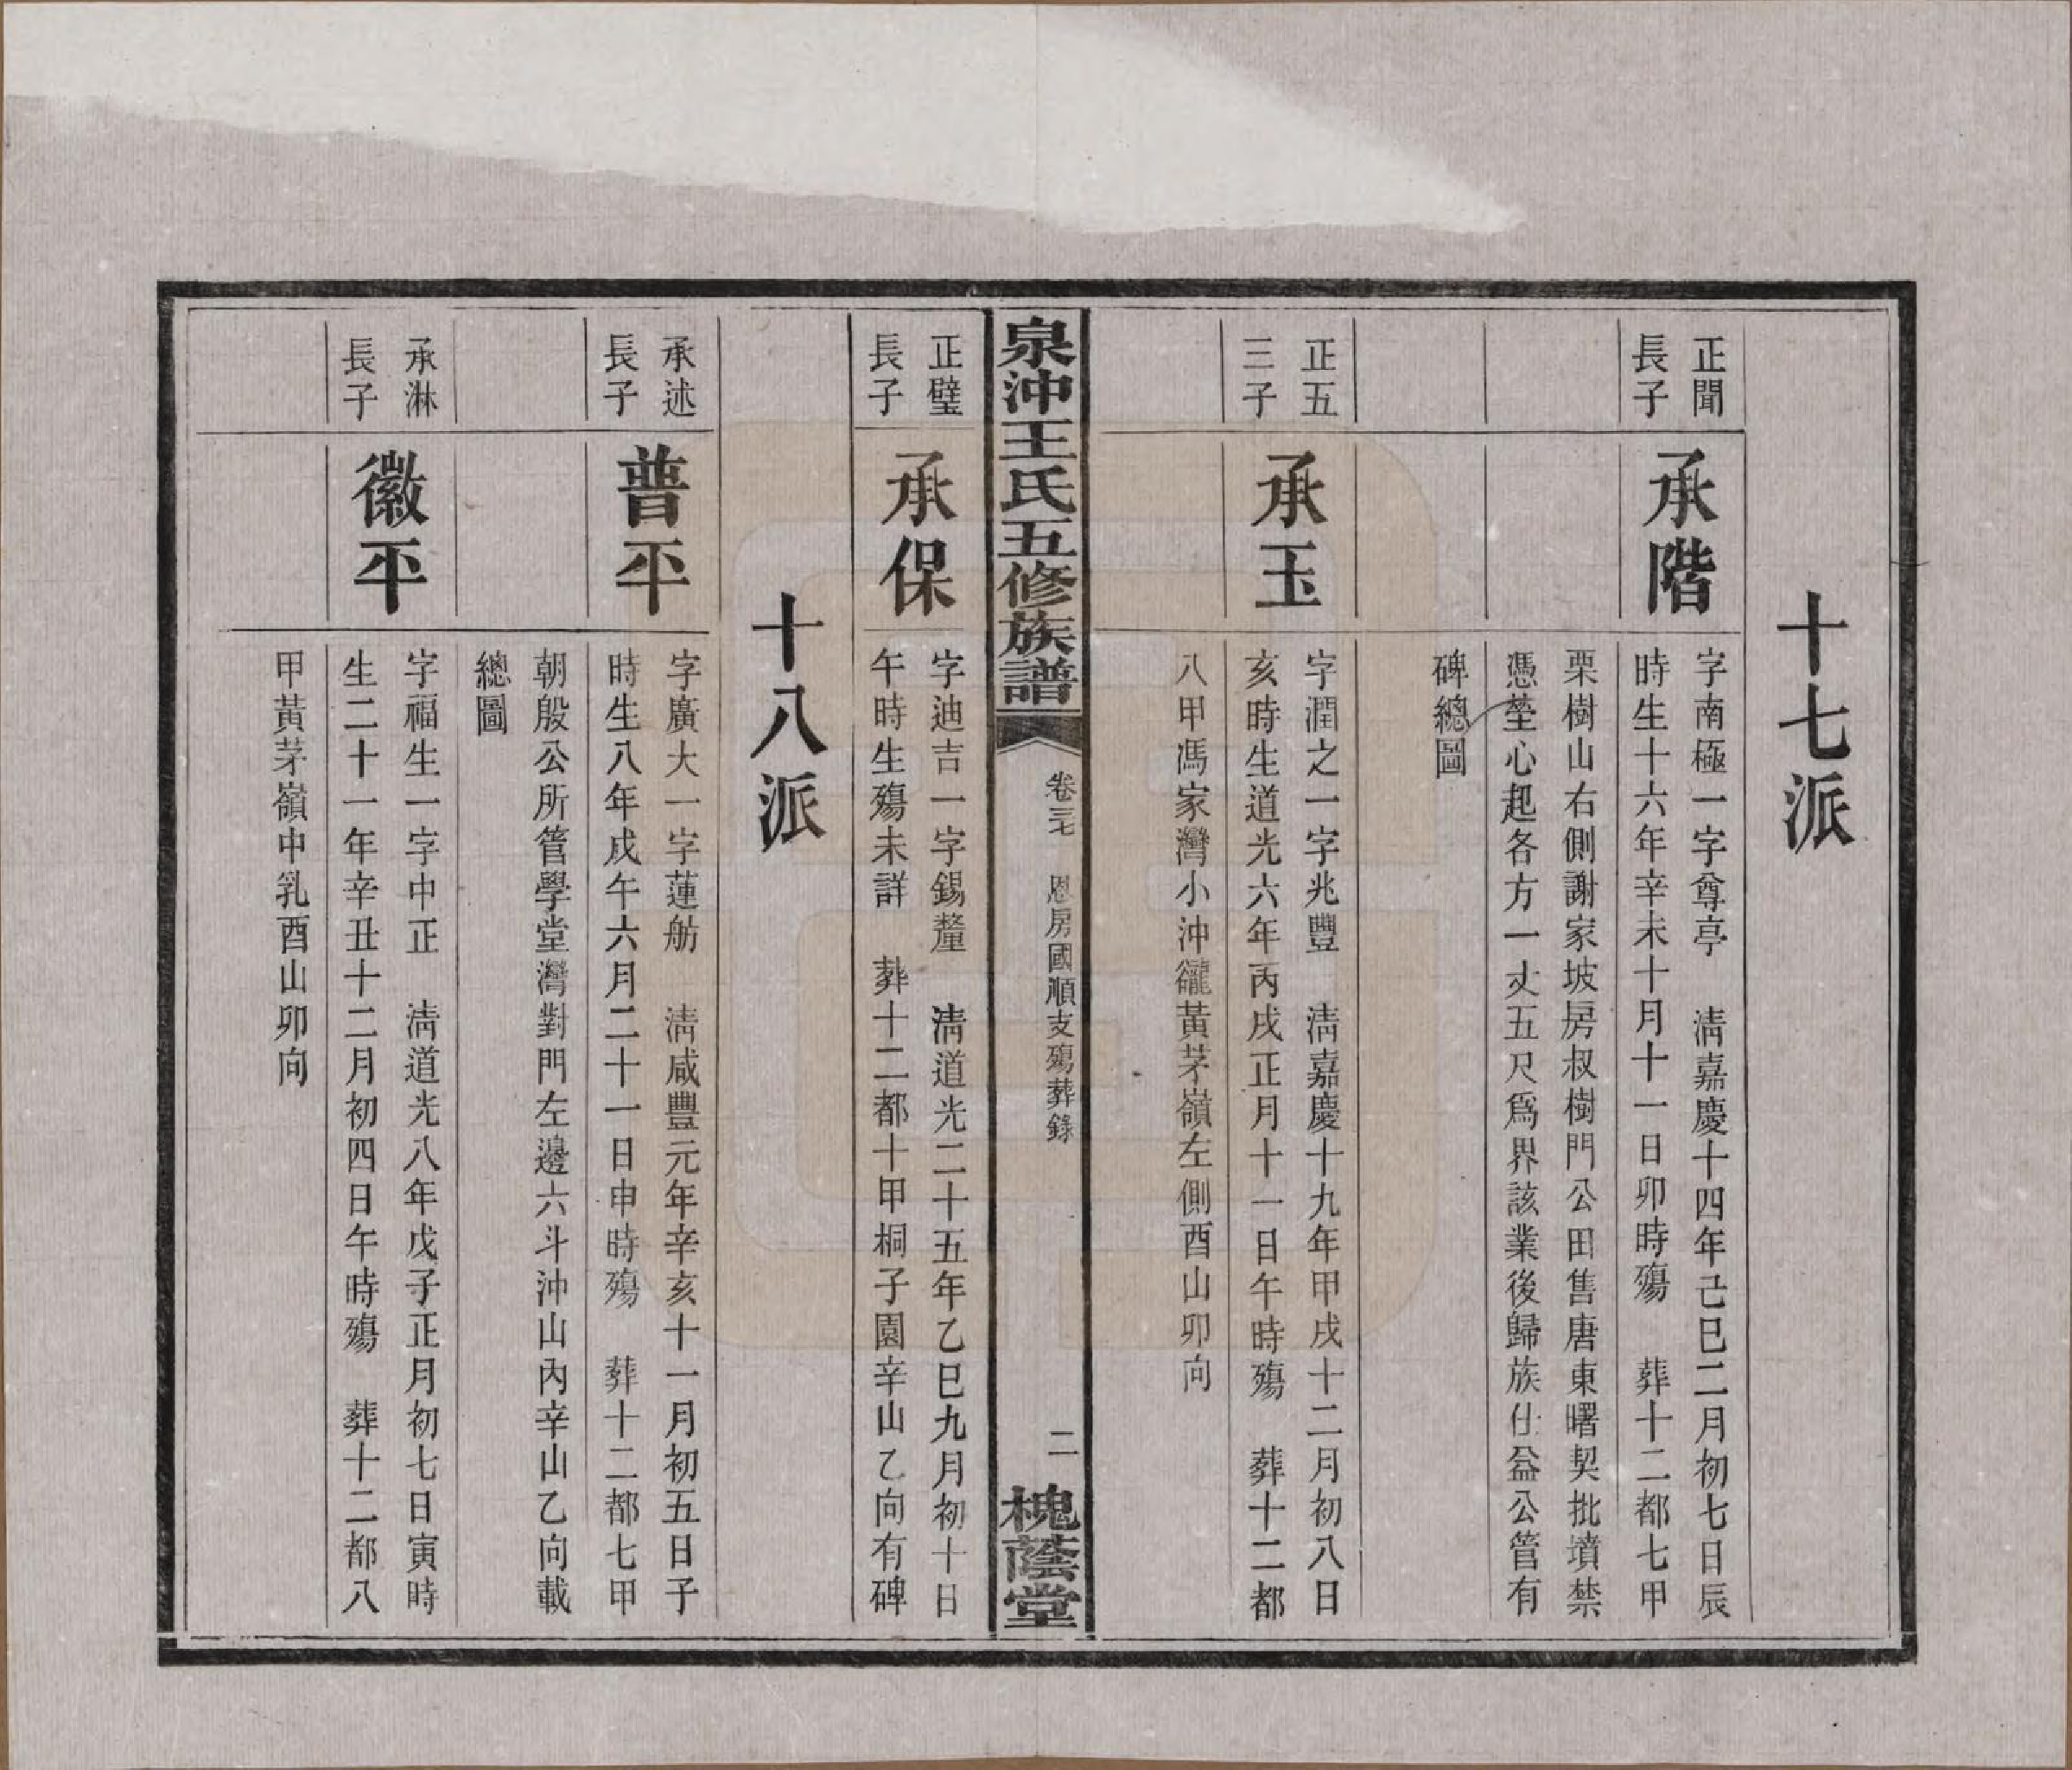 十七派
正聞
長子
承階
字南極一字尊亭　清嘉慶十四年己巳二月初七日辰
時生十六年辛未十月十一日卯時殤　葬十二都七甲
栗樹山右側謝家坡房叔樹門公田售唐東曙契批墳禁
憑塋心起各方一丈五尺爲界該業後歸族仕益公管有
碑總圖
正五
三子
承玉
字潤之一字兆豐　清嘉慶十九年甲戌十二月初八日
亥時生道光六年丙戌正月十一日午時殤　葬十二都
八甲馮家灣小沖黃茅嶺左側酉山卯向
泉沖王氏五修族譜
卷三七　恩房國順支殤葬錄
二
槐蔭堂
正璧
長子
承保
字迪吉一字錫釐　清道光二十五年乙巳九月初十日
午時生殤未詳　葬十二都十甲桐子園辛山乙向有碑
十八派
承述
長子
普平
字廣大一字蓮舫　清咸豐元年辛亥十一月初五日子
時生八年戊午六月二十一日申時殤　葬十二都七甲
朝殷公所管學堂灣對門左邊六斗沖山內辛山乙向載
總圖
承淋
長子
徽平
字福生一字中正　清道光八年戊子正月初七日寅時
生二十一年辛丑十二月初四日午時殤　葬十二都八
甲黃茅嶺中乳酉山卯向